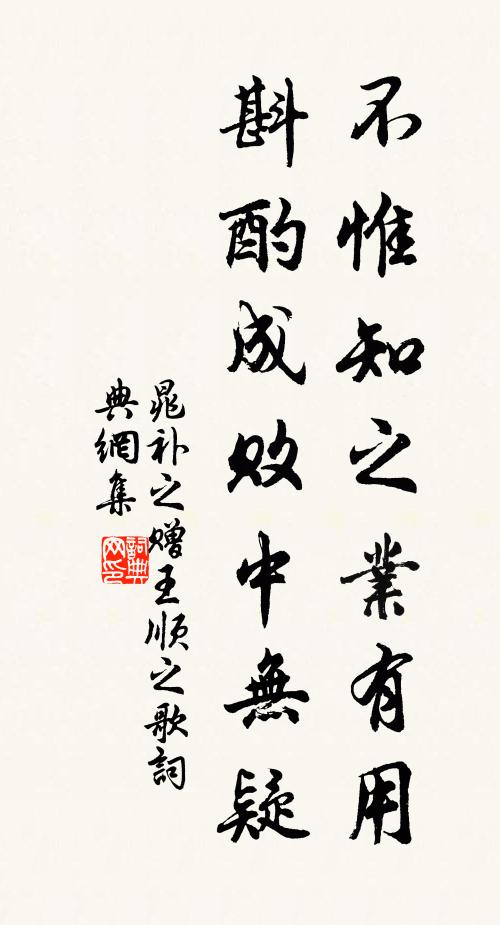 不惟知之業有用
斟酌成敗中無疑
晁补之赠王順之歌詞
典網集
詞典
网印